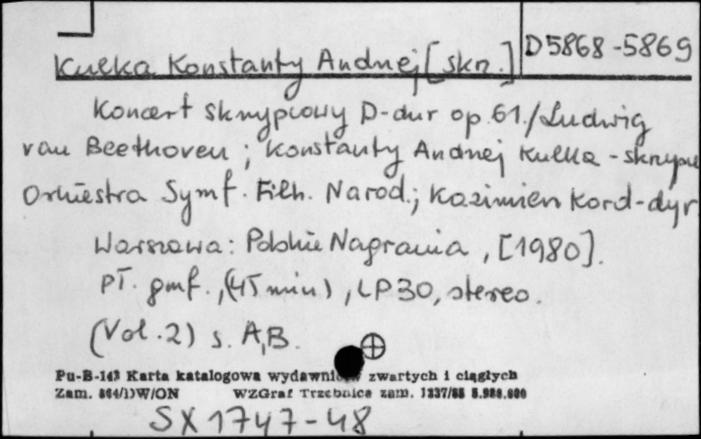 D5868-5869
Kulka Konstanty Andrzej [skrz.]
Koncert skrzypcowy D-dur op.61./Ludwig
van Beethoven; Konstanty Andrzej Kulka - skrzypce
Orkiestra Symf. Filh. Narod.; Kazimierz Kord-dyr
Warszawa: Polskie Nagrania, [1980].
Pł. gmf., (45 min), LP30, stereo.
(Vol.2) s. A,B.
Pu-B-143 Karta katalogowa wydawnictw zwartych i ciągłych
Zam. 564/DW/ON WZGraf Trzebnica zam. 1337/88 5.980.000
SX1747-48